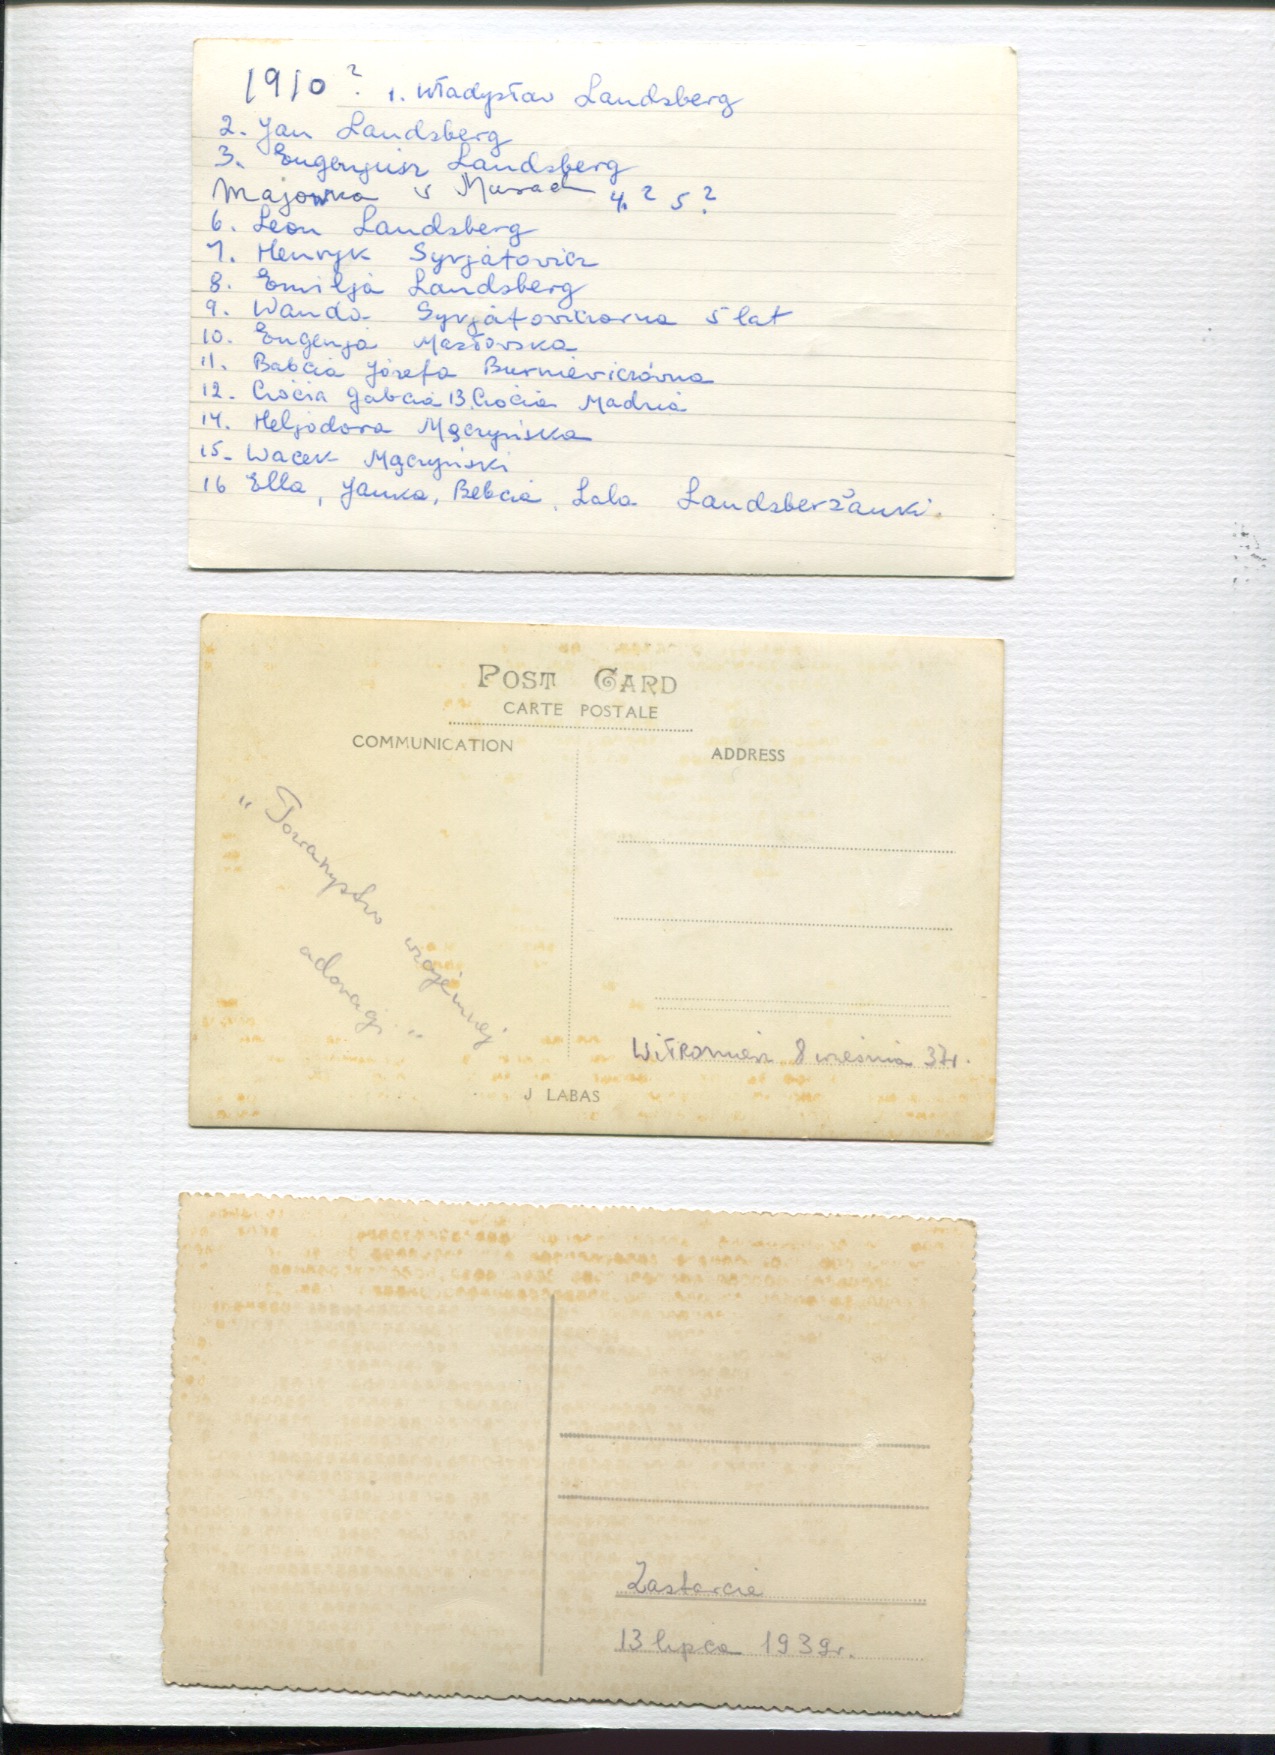 1910 ? 1. Władysław Landsberg
2. Jan Landsberg
3. Eugenjusz Landsberg
Majowka w Murach 4. ? 5 ?
6. Leon Landsberg
7. Henryk Syrjatowicz
8. Emilja Landsberg
9. Wanda Syrjatowiczowna 5 lat
10. Eugenja Maszowska
11. Babcia Józefa Burniewiczówna
12. Ciocia Gabcia 13. Ciocia Madzia
14. Heljodora Mączyńska
15. Wacek Mączyński
16 Ella, Janka, Bebcia, Lala Landsberżanki.
POST CARD
CARTE POSTALE
COMMUNICATION
ADDRESS
„Towarzystwo wzajemnej
adoracji"
Witkomierz 8 września 37r.
J LABAS
Zastarcie
13 lipca 1939r.